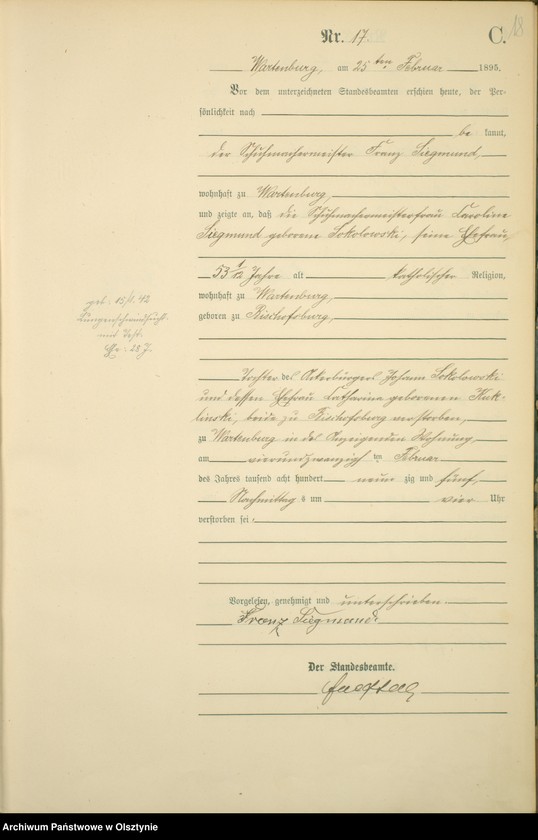 18
Nr. 17
C.
Wartenburg, am 25 ten Februar 1895.
Vor dem unterzeichneten Standesbeamten erschien heute, der Per-
sönlichkeit nach
be kannt,
der Schuhmachermeister Franz Siegmund,
wohnhaft zu Wartenburg,
und zeigte an, daß die Schuhmachermeisterfrau Caroline
Siegmund geborene Sokolowski, seine Ehefrau,
53 1/12 Jahre alt katholischer Religion,
wohnhaft zu Wartenburg,
geboren zu Bischofsburg,
geb. 15/1. 42
Lungenschwindsucht
mit Test.
Ehe: 28 J.
Tochter des Ackerbürgers Johann Sokolowski
und dessen Ehefrau Catharina geborenen Kuk-
linski, beide zu Bischofsburg verstorben,
zu Wartenburg in des Anzeigenden Wohnung
am vierundzwanzigsten Februar
des Jahres tausend acht hundert neun zig und fünf,
Nachmittags um vier Uhr
verstorben sei.
Vorgelesen, genehmigt und unterschrieben
Franz Siegmund.
Der Standesbeamte.
Archiwum Państwowe w Olsztynie